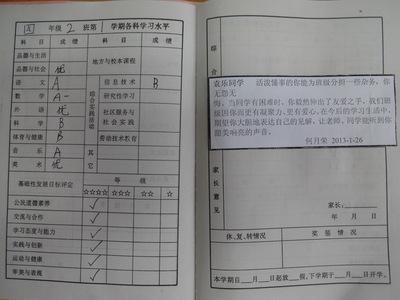 四 年级 2 班第 学期各科学习水平
科 目 成 绩 科 目 成 绩
品德与生活 地方与校本课程
品德与社会 优
语 文 A 综合实践活动 信息技术 B
数 学 A- 研究性学习
外 语 优 社区服务与社会实践
科 学 B
体育与健康 B 劳动技术教育
音 乐 A 其它
美 术 优
基础性发展目标评定 等 级
☆☆☆☆ ☆☆☆ ☆☆ ☆
公民道德素养 ✓
交流与合作 ✓
学习态度与能力 ✓
实践与创新 ✓
运动与健康 ✓
审美与表现 ✓
综合
袁乐同学 活泼懂事的你能为班级分担一些杂务，你
无怨无
悔。当同学有困难时，你毅然伸出了友爱之手。我们班
级因你而更有凝聚力、更有爱心。在今后的学习生活中，
期望你大胆地表达自己的见解，让老师、同学能听到你
甜美响亮的声音。
何月荣 2013-1-26
家长意见
家长：
年 月 日
休、复、转情况 奖惩情况
本学期自 月 日起放 假，下学期于 月 日开学。